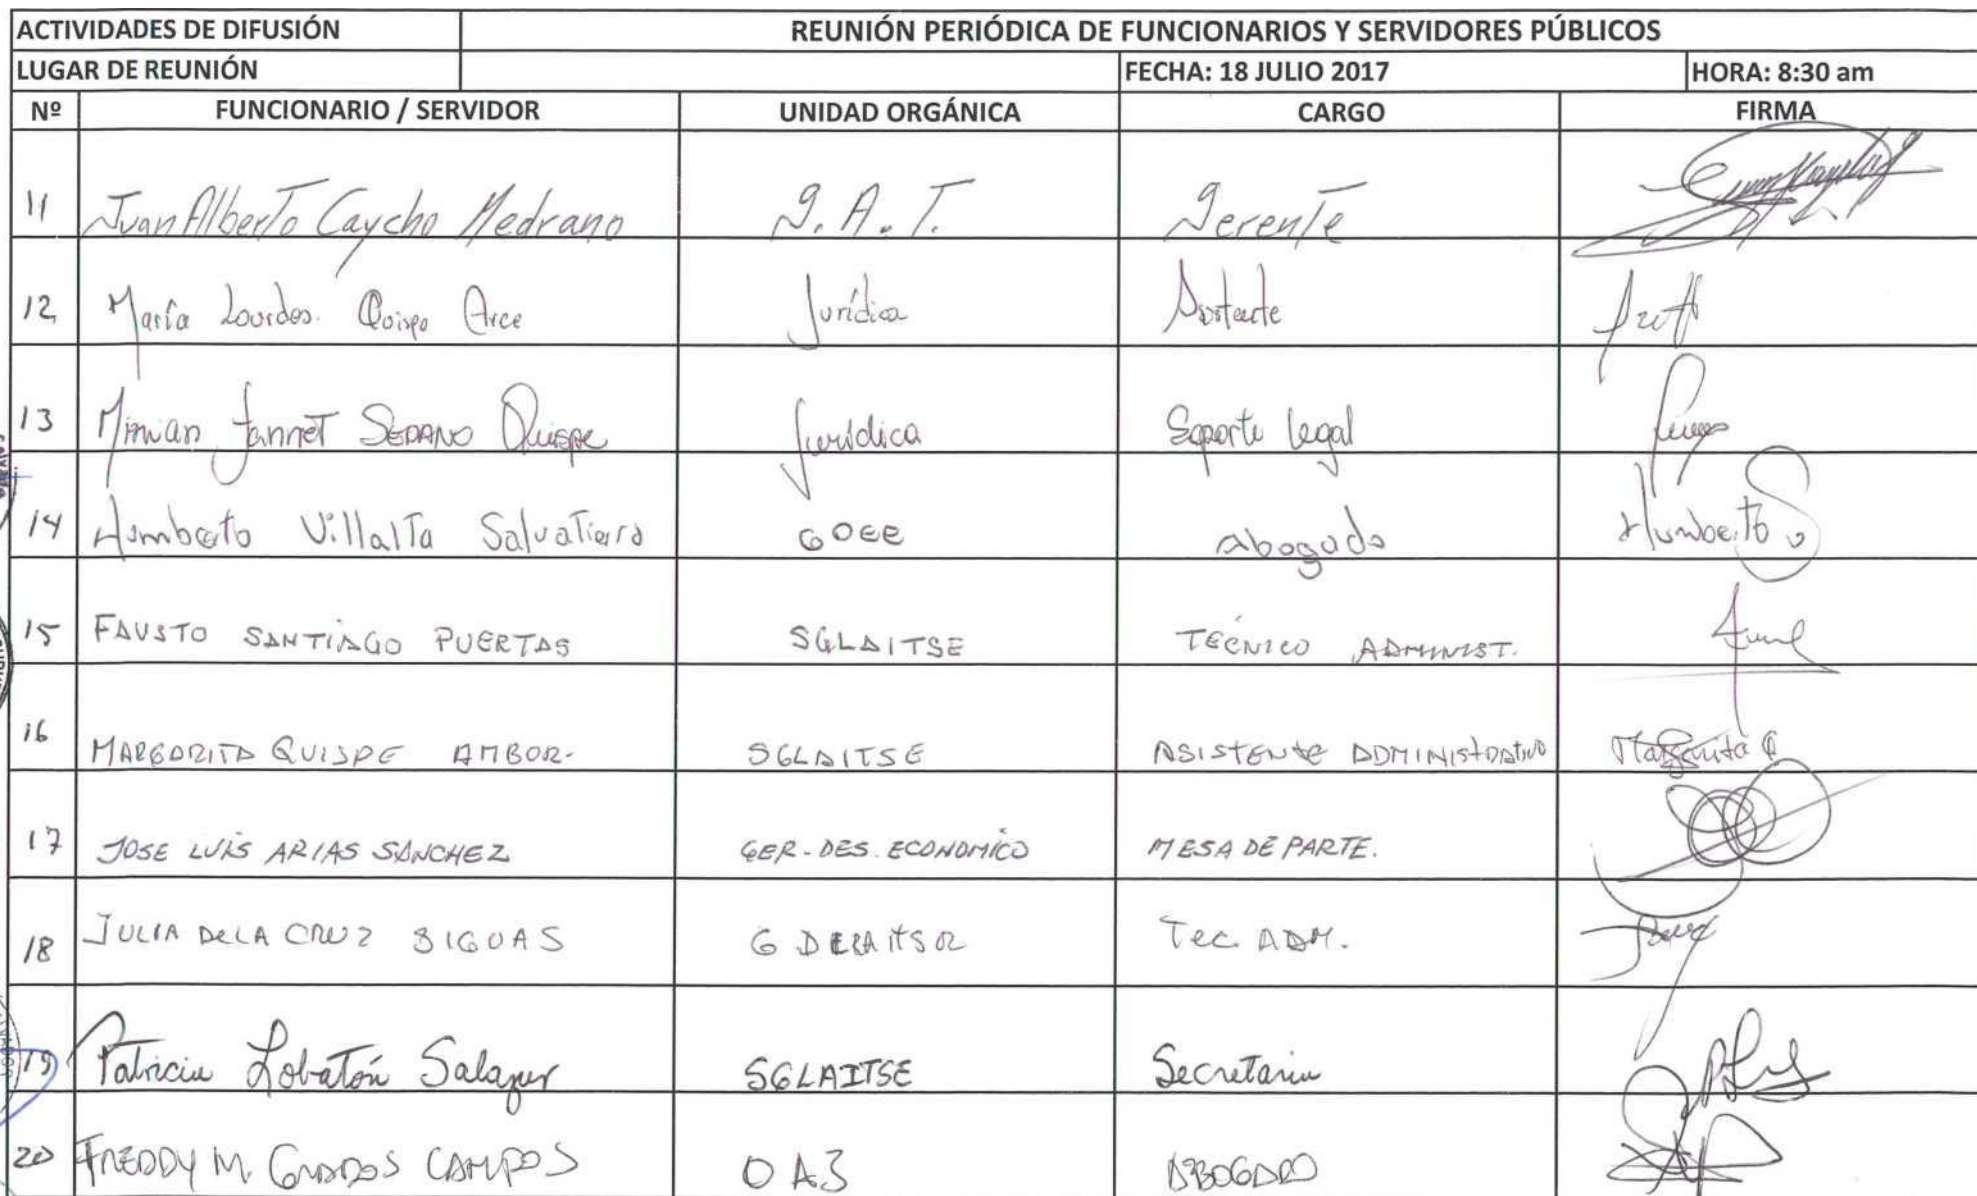 ACTIVIDADES DE DIFUSIÓN REUNIÓN PERIÓDICA DE FUNCIONARIOS Y SERVIDORES PÚBLICOS
LUGAR DE REUNIÓN FECHA: 18 JULIO 2017 HORA: 8:30 am
Nº FUNCIONARIO / SERVIDOR UNIDAD ORGÁNICA CARGO FIRMA
11 Juan Alberto Caycho Medrano G.A.T. Gerente
12 María Lourdes. Quispe Arce Jurídica Asistente
13 Mirian Jannet SEDANO Quispe Jurídica Soporte Legal
14 Humberto Villalta Salvatierra Abogado Humberto
15 FAUSTO SANTIAGO PUERTAS SGLAITSE TECNICO ADMINIST.
16 MARGARITA QUISPE AMBOR- SGLAITSE ASISTENTE ADMINISTRATIVO Margarita Q
17 JOSE LUIS ARIAS SANCHEZ GER-DES. ECONOMICO MESA DE PARTE.
18 JULIA DE LA CRUZ SIGUAS Tec. ADM.
19 Patricia Lobatón Salazar SGLAITSE Secretaria
20 FREDDY M. GRADOS CAMPOS OAJ ABOGADO